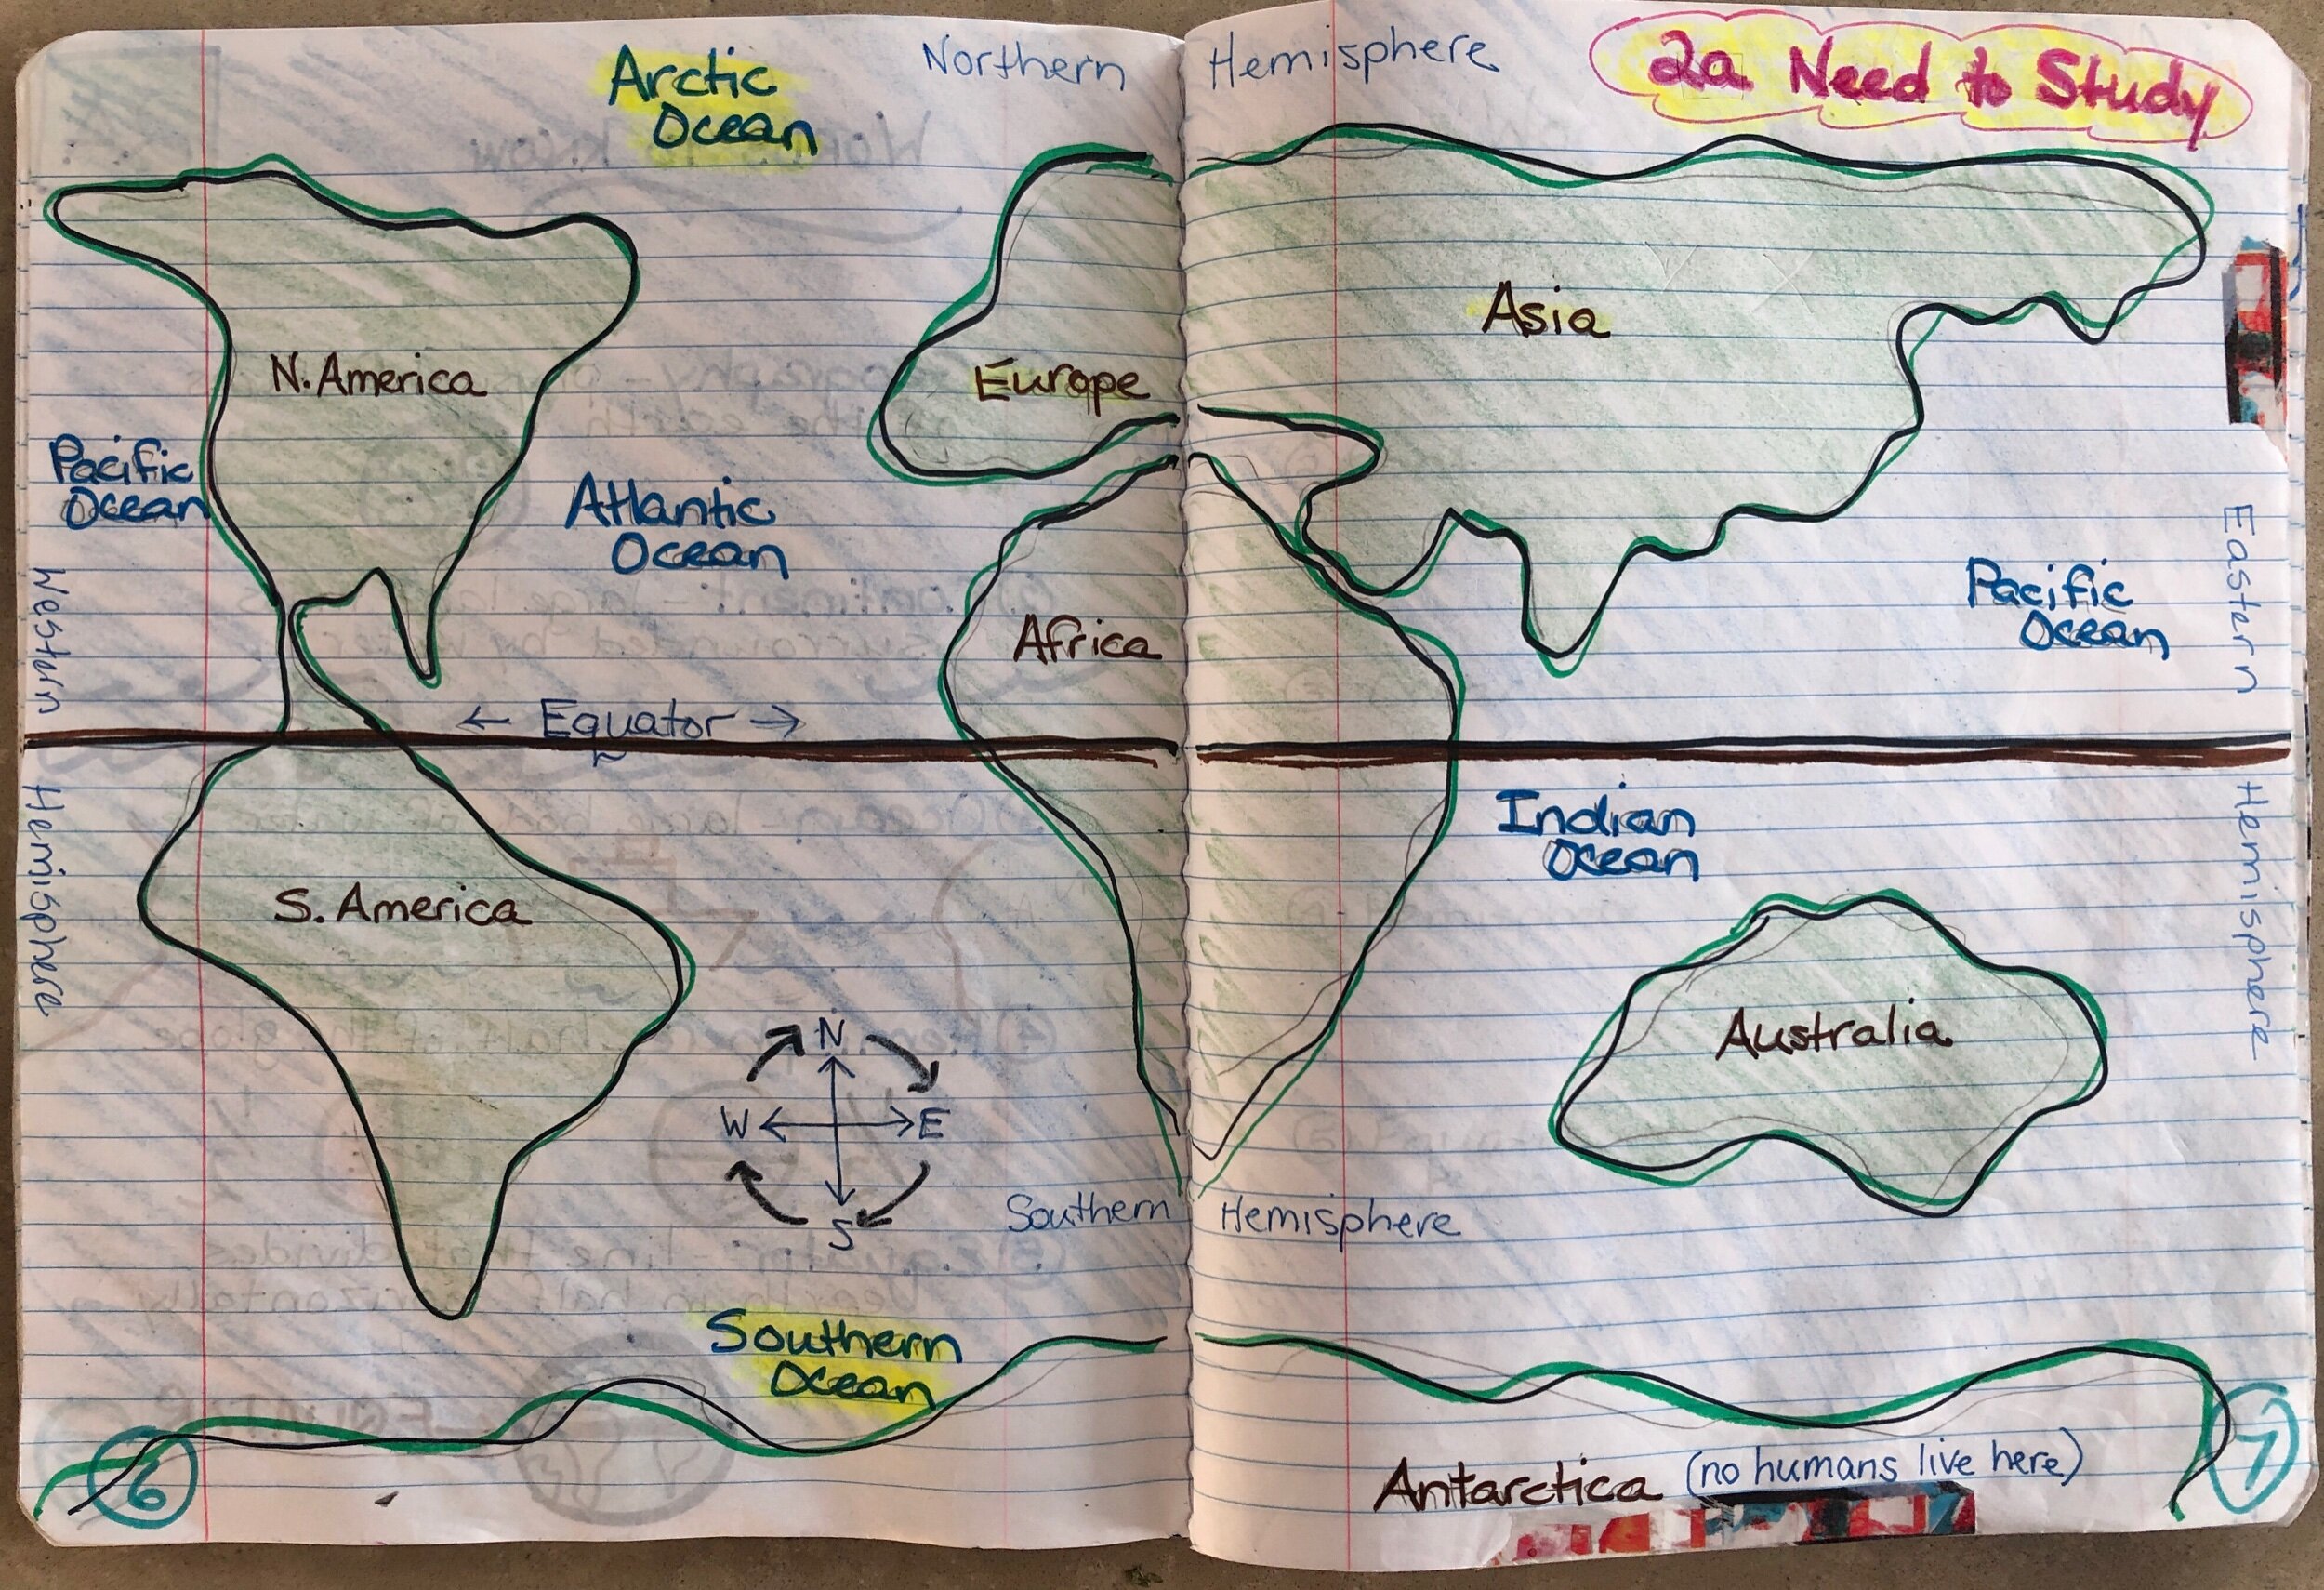 Northern Hemisphere
2a Need to Study
Arctic
Ocean
N. America
Europe
Asia
Pacific
Ocean
Atlantic
Ocean
Africa
Pacific
Ocean
Western
Hemisphere
Eastern
Hemisphere
← Equator →
Indian
Ocean
S. America
Australia
N
W E
S
Southern Hemisphere
Southern
Ocean
Antarctica (no humans live here)
6
7